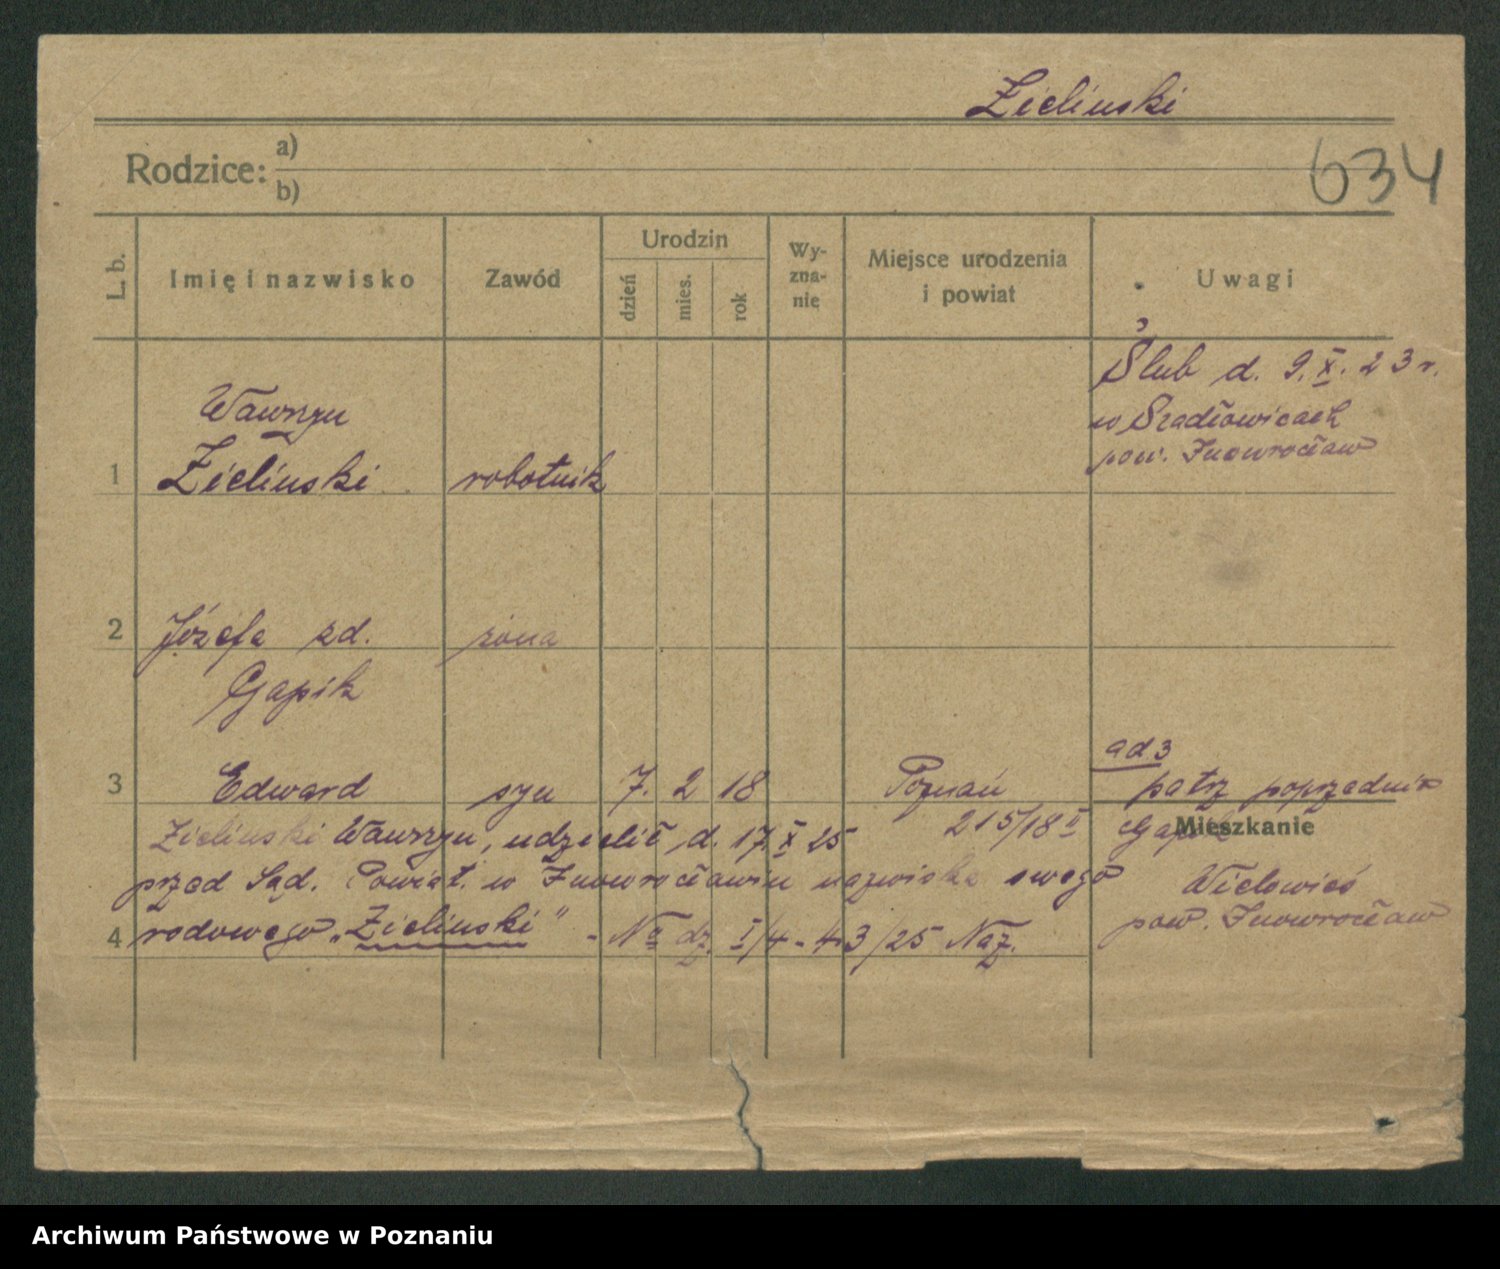 Zieliński
Rodzice: a)
b)
634
L. b.
Imię i nazwisko
Zawód
Urodzin
dzień
mies.
rok
Wy-
zna-
nie
Miejsce urodzenia
i powiat
Uwagi
Ślub d. 9. X. 23 r.
w Szadłowicach
pow. Inowrocław
Wawrzyn
1 Zieliński robotnik
2 Józefa zd. żona
Gapik
ad 3
3 Edward syn 7. 2 18 Poznań patrz poprzednio
215/18 II Gapik
Mieszkanie
Zieliński Wawrzyn, udzielił d. 17. X 25
przed Sąd. Powiat. w Inowrocławiu nazwiska swego
4 rodowego „Zieliński" - No dz. I/4 - 43/25 Naz.
Wielowieś
pow. Inowrocław
Archiwum Państwowe w Poznaniu